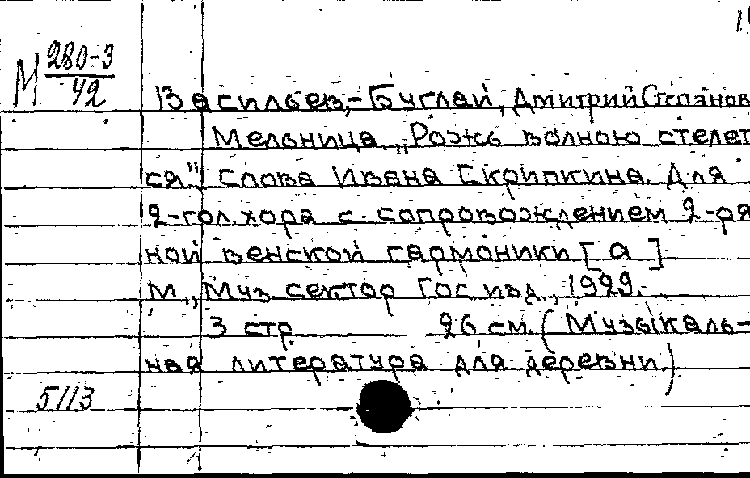 М 280-3
42
Васильев-Буглай, Дмитрий Степанов
Мельница „Рожь волною стелет
ся". Слова Ивана Скрипкина. Для
2-гол. хора с сопровождением 2-ря
ной венской гармоники [а]
М., Муз. сектор Гос. изд., 1929.
3 стр. 26 см. (Музыкаль-
ная литература для деревни.)
5113